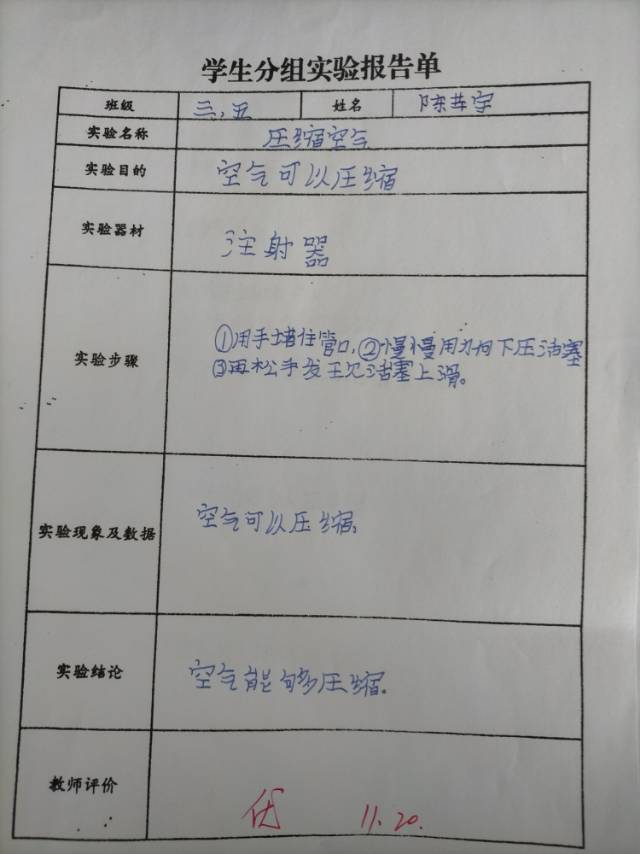 学生分组实验报告单
班级 三.五 姓名 陈其宇
实验名称 压缩空气
实验目的 空气可以压缩
实验器材 注射器
实验步骤 ①用手堵住管口,②慢慢用力向下压活塞
③再松手发现活塞上滑。
实验现象及数据 空气可以压缩。
实验结论 空气能够压缩.
教师评价 优 11.20.